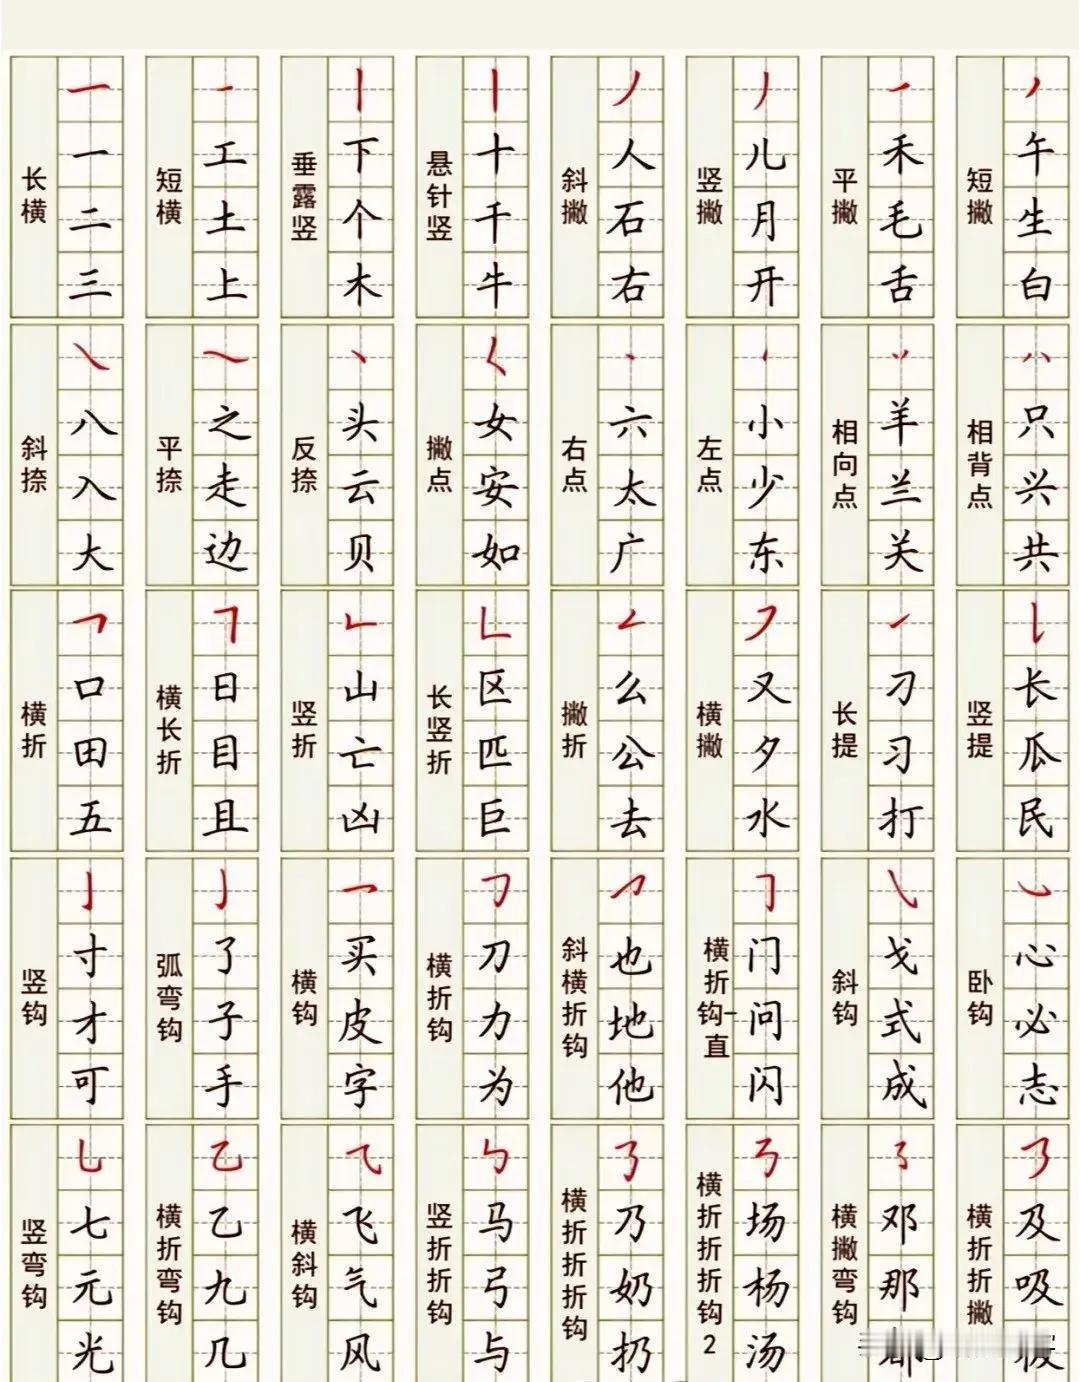 长横 一 一 二 三
短横 一 工 土 上
垂露竖 丨 下 个 木
悬针竖 丨 十 千 牛
斜撇 丿 人 石 右
竖撇 丿 儿 月 开
平撇 ㇒ 禾 毛 舌
短撇 ㇒ 午 生 白
斜捺 ㇏ 八 入 大
平捺 ㇏ 之 走 边
反捺 丶 头 云 贝
撇点 ㇛ 女 安 如
右点 丶 六 太 广
左点 丶 小 少 东
相向点 丷 羊 兰 关
相背点 ハ 只 兴 共
横折 ㇕ 口 田 五
横长折 ㇕ 日 目 且
竖折 ㇗ 山 亡 凶
长竖折 ㇗ 区 匹 巨
撇折 ㇜ 么 公 去
横撇 ㇇ 又 夕 水
长提 ㇀ 刁 习 打
竖提 ㇙ 长 瓜 民
竖钩 亅 寸 才 可
弧弯钩 ㇁ 了 子 手
横钩 ㇖ 买 皮 字
横折钩 ㇆ 刀 力 为
斜横折钩 ㇆ 也 地 他
横折钩一直 ㇆ 门 问 闪
斜钩 ㇂ 戈 式 成
卧钩 ㇃ 心 必 志
竖弯钩 ㇟ 七 元 光
横折弯钩 ㇠ 乙 九 几
横斜钩 ⺄ 飞 气 风
竖折折钩 ㇉ 马 弓 与
横折折折钩 ㇡ 乃 奶 扔
横折折折钩2 ㇡ 场 杨 汤
横撇弯钩 ㇌ 邓 那
横折折撇 ㇋ 及 吸